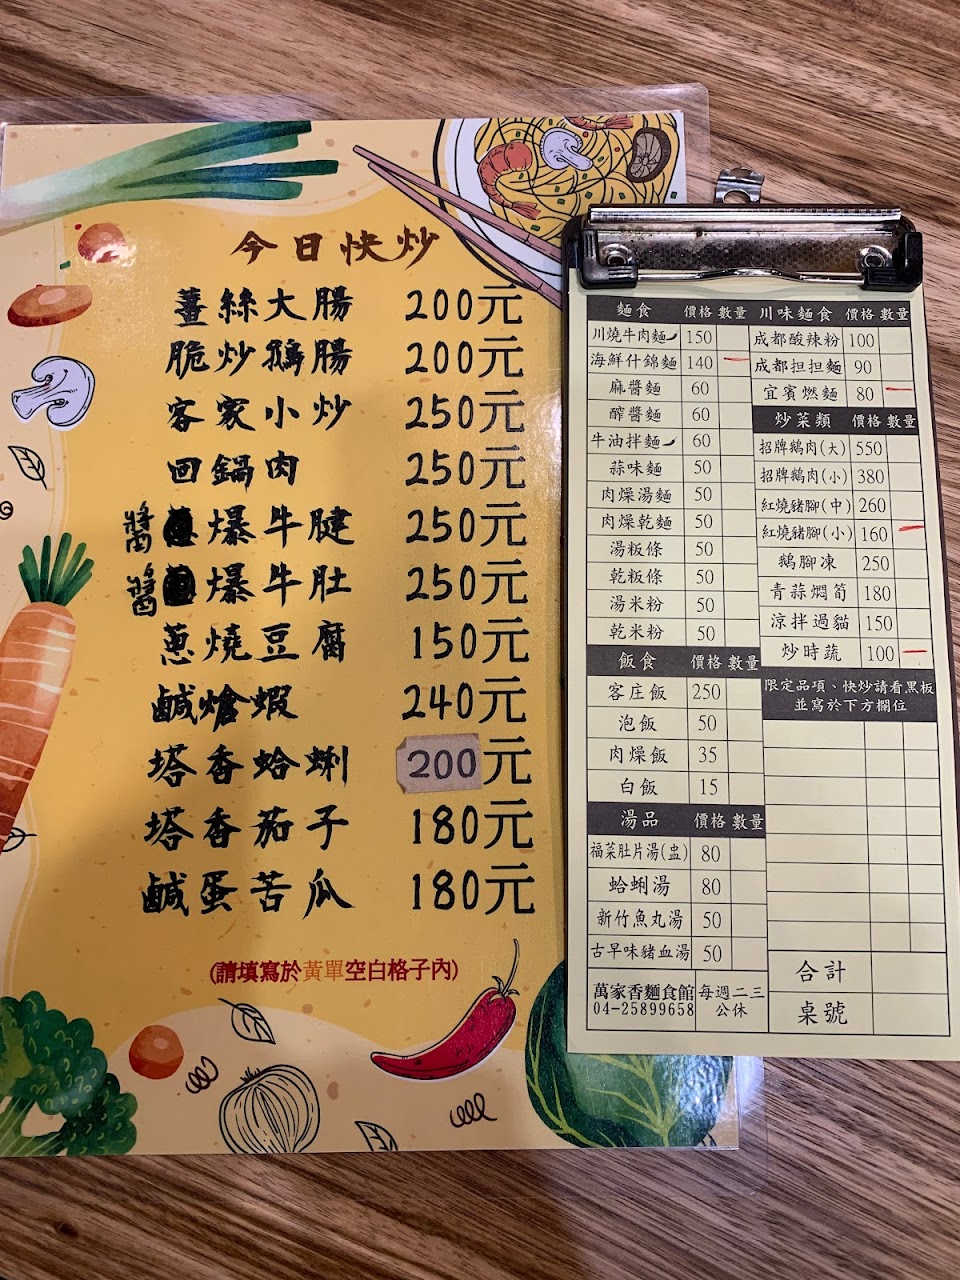 今日快炒
薑絲大腸 200元
脆炒鵝腸 200元
客家小炒 250元
回鍋肉 250元
醬爆牛腱 250元
醬爆牛肚 250元
蔥燒豆腐 150元
鹹熗蝦 240元
塔香蛤蜊 200元
塔香茄子 180元
鹹蛋苦瓜 180元
(請填寫於黃單空白格子內)
麵食 價格 數量
川燒牛肉麵 150
海鮮什錦麵 140
麻醬麵 60
酢醬麵 60
牛油拌麵 60
蒜味麵 50
肉燥湯麵 50
肉燥乾麵 50
湯粄條 50
乾粄條 50
湯米粉 50
乾米粉 50
飯食 價格 數量
客庄飯 250
泡飯 50
肉燥飯 35
白飯 15
湯品 價格 數量
福菜肚片湯(盅) 80
蛤蜊湯 80
新竹魚丸湯 50
古早味豬血湯 50
萬家香麵食館
04-25899658
每週二三
公休
川味麵食 價格 數量
成都酸辣粉 100
成都担担麵 90
宜賓燃麵 80
炒菜類 價格 數量
招牌鵝肉(大) 550
招牌鵝肉(小) 380
紅燒豬腳(中) 260
紅燒豬腳(小) 160
鵝腳凍 250
青蒜燜筍 180
涼拌過貓 150
炒時蔬 100
限定品項、快炒請看黑板
並寫於下方欄位
合計
桌號